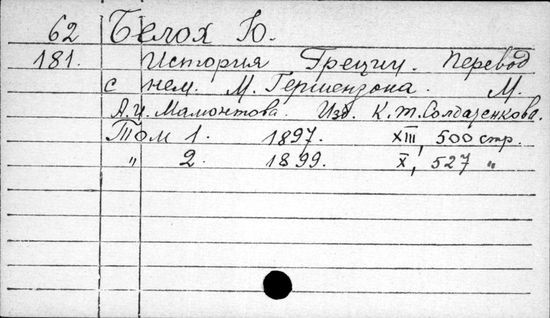 62 Белох Ю.
181. История Греции. Перевод
с нем. М. Гершензона. М.
А.И. Мамонтова. Изд. К.Т. Солдатенкова.
Том 1. 1897. XIII, 500 стр.
" 2. 1899. X, 527 "